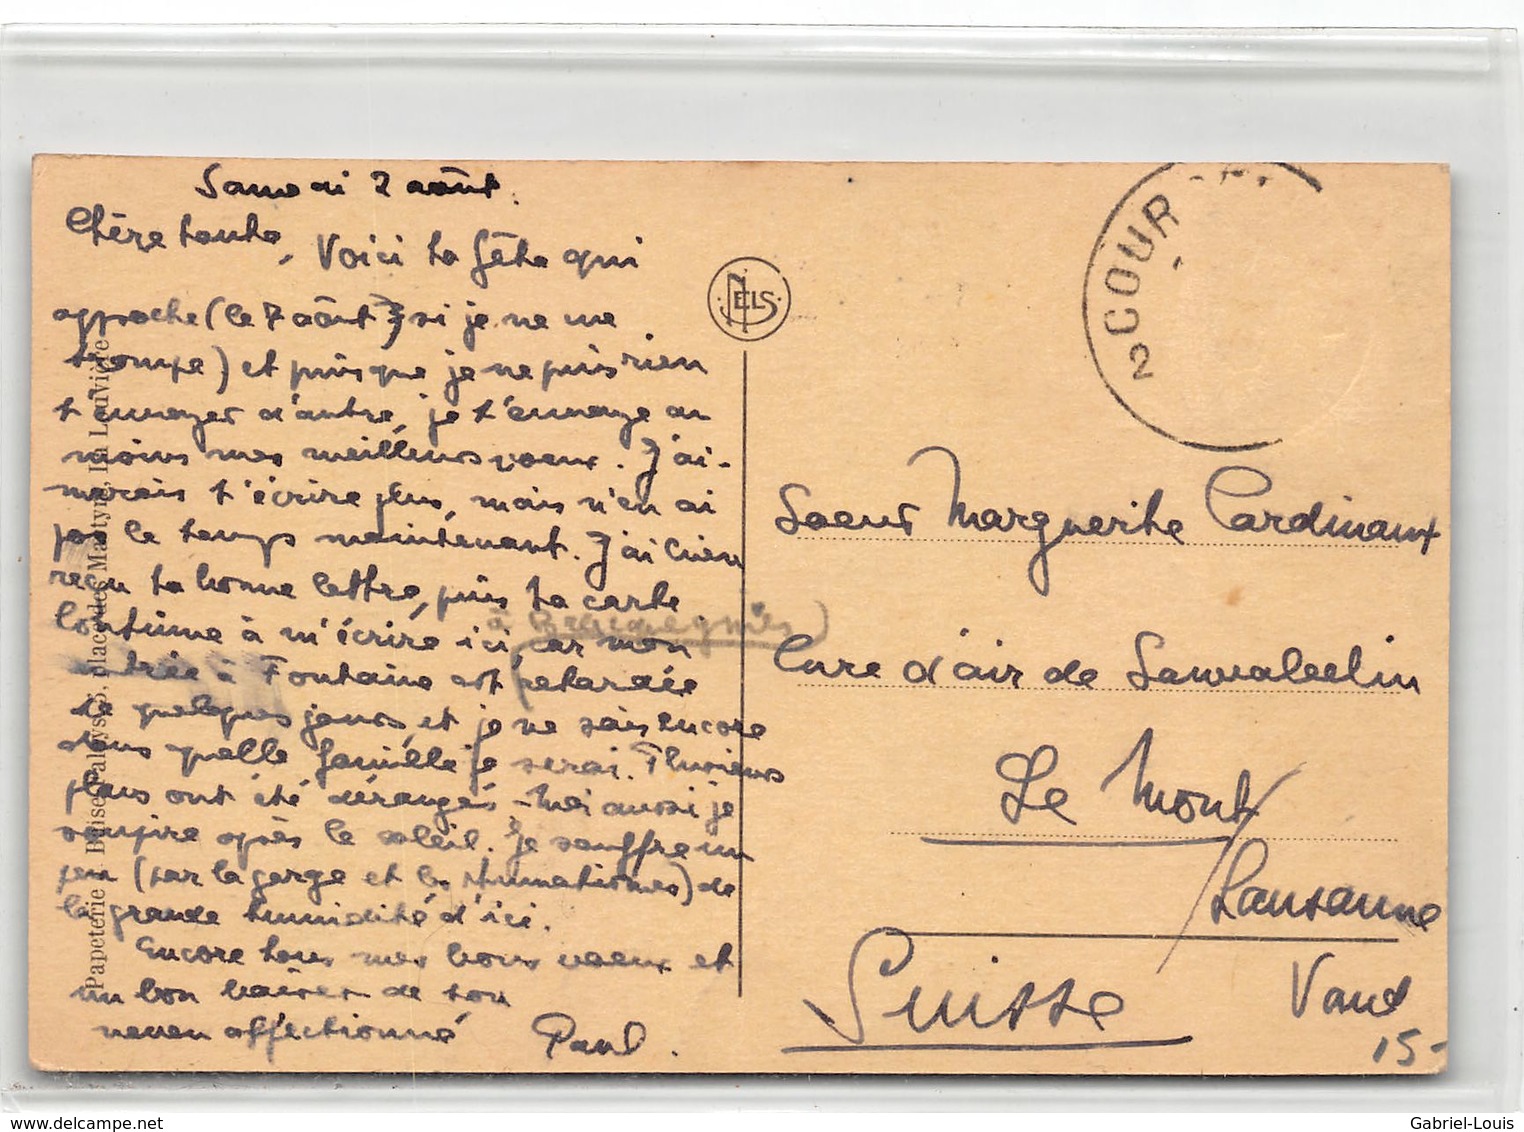 Samedi 2 août.
Chère tante, Voici ta fête qui
approche (le 7 août si je ne me
trompe) et puisque je ne puis rien
t'envoyer d'autre, je t'envoye au
moins mes meilleurs voeux. J'ai-
merais t'écrire plus, mais n'en ai
pas le temps maintenant. J'ai bien
reçu ta bonne lettre, puis ta carte
à Bracquegnies)
Continue à m'écrire ici, car mon
entrée à Fontaine est retardée
de quelques jours, et je ne sais encore
dans quelle famille je serai. Plusieurs
plans ont été dérangés - Moi aussi je
soupire après le soleil. Je souffre un
peu (par la gorge et les rhumatismes) de
la grande humidité d'ici.
Encore tous mes bons voeux et
un bon baiser de ton
neveu affectionné Paul.
Papeterie Palayse, place des Martyrs, La Louvière
NELS
2 COUR
Soeur Marguerite Cardinaux
Cure d'air de
Le Mont
Lausanne
Suisse Vaud
15-
Gabriel-Louis